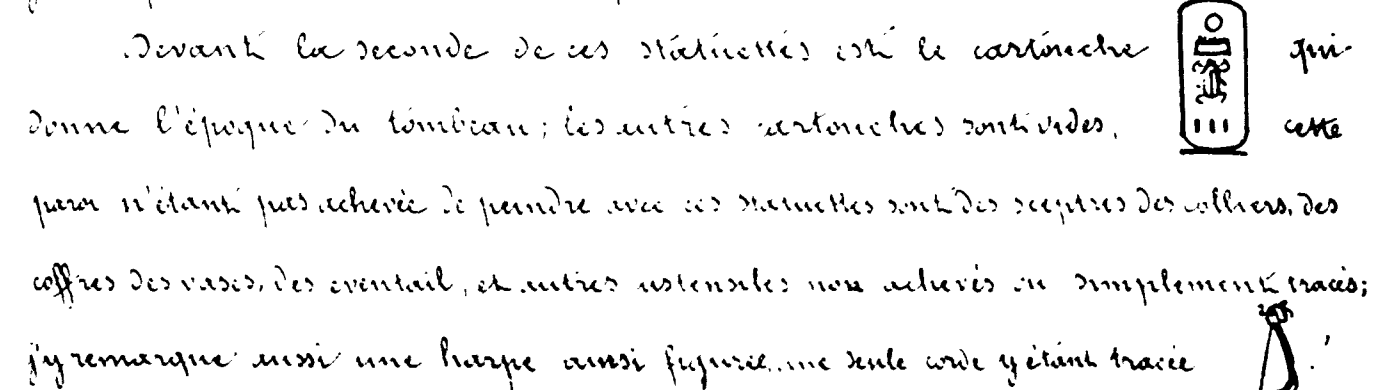 Devant la seconde de ces statuettes est le cartouche qui
donne l'époque du tombeau; les autres cartouches sont vides, cette
paroi n'étant pas achevée de peindre avec ces statuettes sont des sceptres des colliers, des
coffres des vases, des eventail, et autres ustensiles non achevés ou simplement tracés;
j'y remarque aussi une harpe ainsi figurée, une seule corde y étant tracée